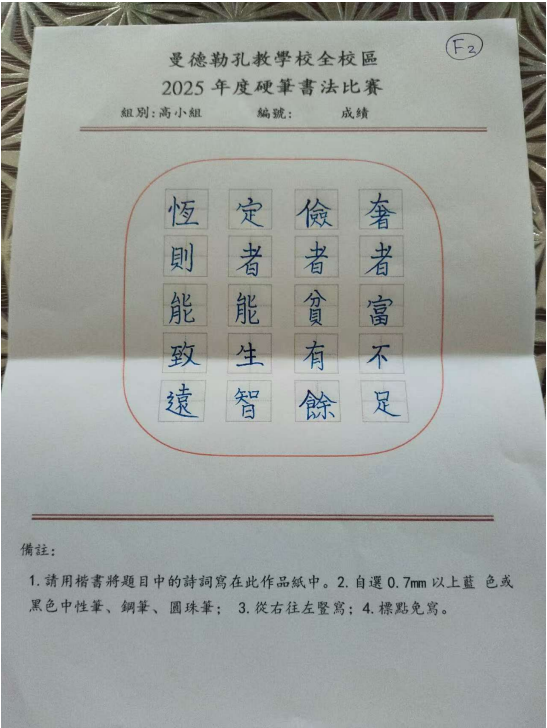 F2
曼德勒孔教學校全校區
2025 年度硬筆書法比賽
組別:高小組 編號: 成績
奢者富不足
儉者貧有餘
定者能生智
恆則能致遠
備註:
1.請用楷書將題目中的詩詞寫在此作品紙中。2.自選 0.7mm 以上藍 色或
黑色中性筆、鋼筆、圓珠筆; 3.從右往左豎寫;4.標點免寫。